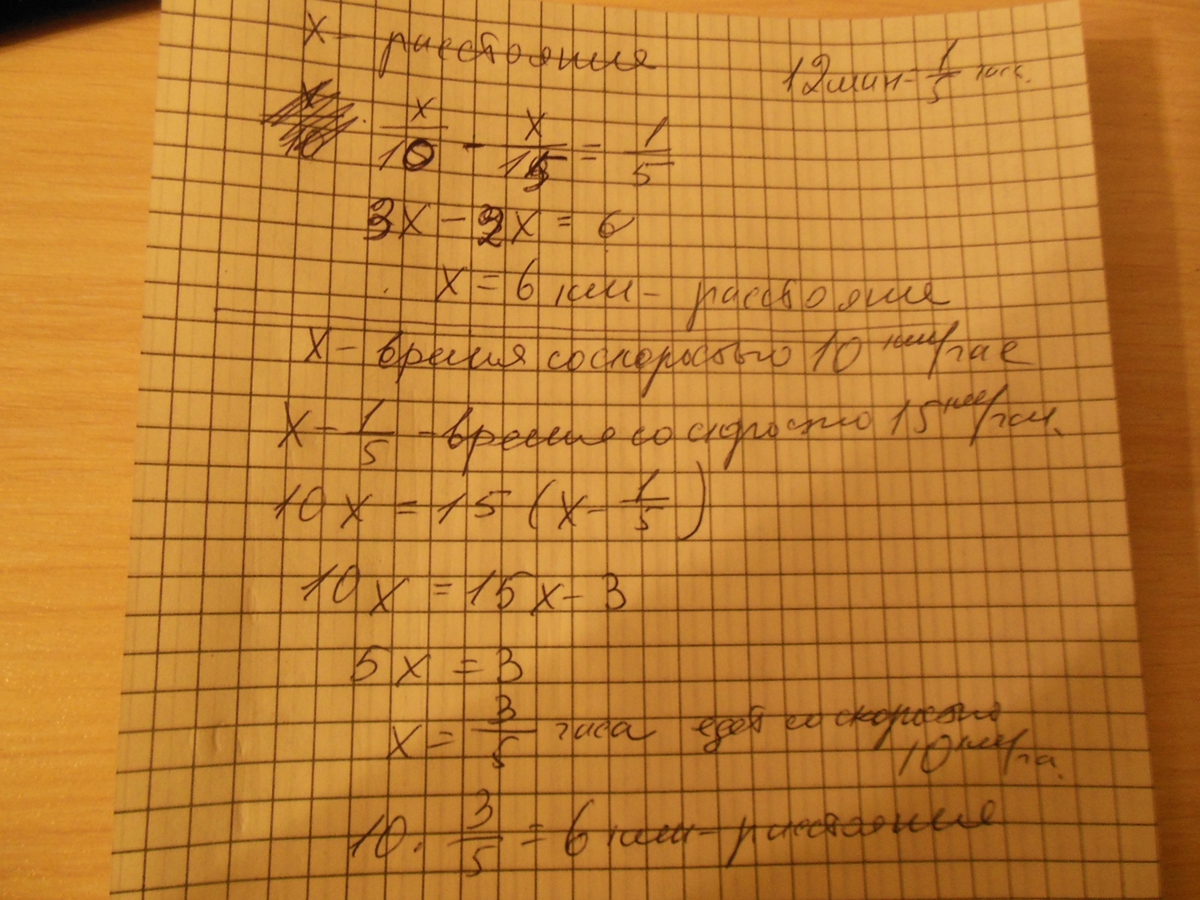 x - расстояния
12 мин = 1/5 часа.
x/10 - x/15 = 1/5
3x - 2x = 6
x = 6 км - расстояние
x - время со скоростью 10 км/час
x - 1/5 - время со скоростью 15 км/час.
10x = 15 (x - 1/5)
10x = 15x - 3
5x = 3
x = 3/5 часа едет со скоростью
10 км/ча.
10 · 3/5 = 6 км - расстояния